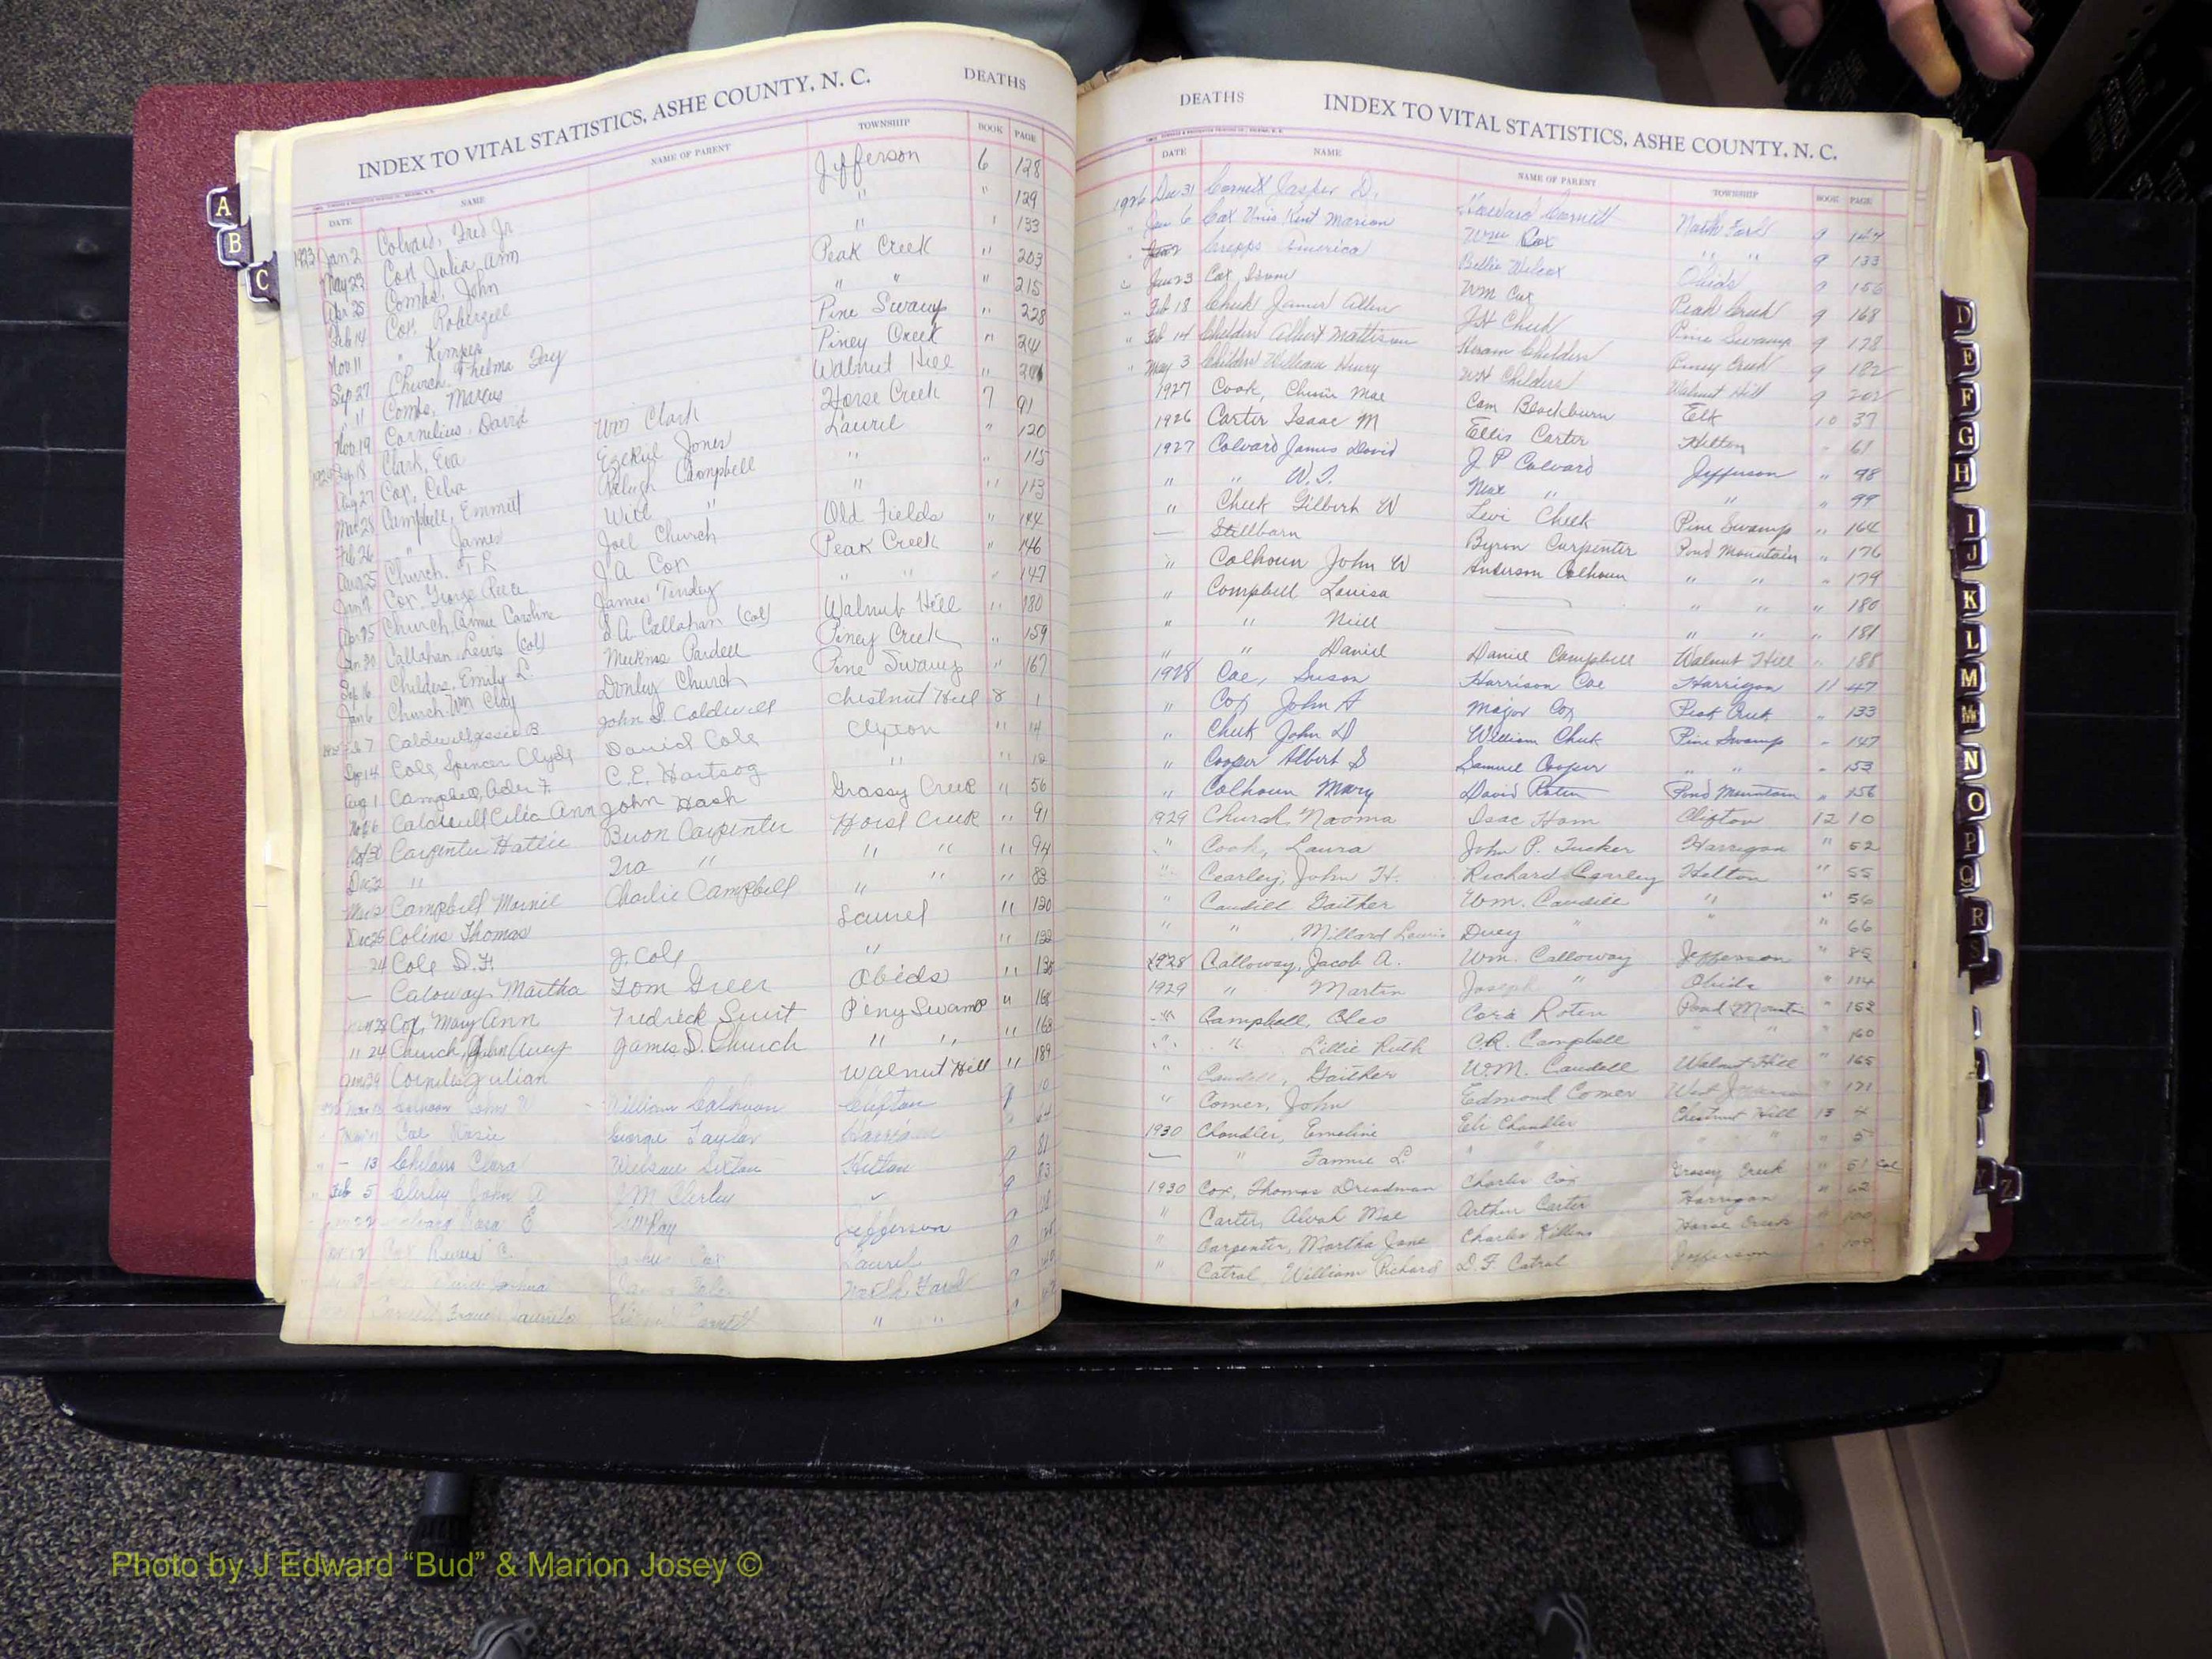 INDEX TO VITAL STATISTICS, ASHE COUNTY, N. C. DEATHS
DATE NAME NAME OF PARENT TOWNSHIP BOOK PAGE
1923 Jan 2 Colvard, Fred Jr Jefferson 6 128
May 23 Cox Julia Ann " " 129
Apr 25 Combs, John " 133
Feb 14 Cox, Peak Creek " 203
Nov 11 " Kemper " " 215
Sep 27 Church, Thelma Fay Pine Swamp " 228
" 11 Combs, Marcus Piney Creek " 241
Nov 19 Cornelius, David Walnut Hill "
Sep 18 Clark, Eva Wm Clark Horse Creek 7 91
Aug 27 Cox, Celia Ezekiel Jones Laurel " 120
Mar 28 Campbell, Emmitt Campbell " " 115
Feb 26 " James Will " " " 113
Aug 25 Church, T R Joel Church Old Fields " 144
Jan 7 Cox George J.A. Cox Peak Creek " 146
Apr 25 Church, Annie Caroline James " " " 147
Jan 30 Callahan, Lewis (Col) Callahan (Col) Walnut Hill " 180
Sep 16 Childers, Emily L. Pardell Piney Creek " 159
Jan 6 Church, Wm Clay Donley Church Pine Swamp " 167
7 Caldwell Jessee B. John S. Caldwell Chestnut Hill 8 1
Sep 14 Cole, Spencer Clyde David Cole Clifton " 14
Aug 1 Campbell, Ader F. C.E. Hartsog " " 12
Caldwell Celia Ann John Hash Grassy Creek " 56
Carpenter Hattie Buron Carpenter Horse Creek " 91
Dec 2 " Ira " " " " 94
Campbell Mamie Charlie Campbell " " " 83
Dec 25 Colins Thomas Laurel " 120
24 Cole D.F. J. Cole " " 122
— Caloway Martha Tom Greer Obieds "
Cox, Mary Ann Fredrick Piny Swamp "
" 24 Church, John Avery James D. Church " " " 163
Walnut Hill " 189
Calhoun John W William Calhoun Clifton 9
Coe Rosie George Taylor 9
" – 13 Childers Clara Sexton Helton 9 81
Feb 5 John 9 83
E Jefferson 9
Cox C. Laurel 9
North Fork 9
Francis " " 9
DEATHS INDEX TO VITAL STATISTICS, ASHE COUNTY, N. C.
DATE NAME NAME OF PARENT TOWNSHIP BOOK PAGE
1926 Dec 31 Cornett Casper D. Howard Cornett North Fork 9 147
" Jan 6 Cox Kent Marion Wm Cox " " 9 133
" Crepps America Billie Wilcox Obids 9 156
" Jan 23 Cox Wm Cox Peak Creek 9 168
" Feb 18 Cheek James Allen J H Cheek Pine Swamp 9 178
" Feb 14 Childers Albert Mattison Hiram Childers Piney Creek 9 182
" May 3 Childers William Henry WH Childers Walnut Hill 9 202
1927 Cook, Mae Cam Blackburn Elk 10 37
1926 Carter Isaac M Ellis Carter Helton " 61
1927 Colvard James David J P Colvard Jefferson " 98
" " W.T. " " " 99
" Cheek Gilbert W Levi Cheek Pine Swamp " 164
— Stillborn Byron Carpenter Pond Mountain " 176
" Calhoun John W Anderson Calhoun " " " 179
" Campbell Louisa — " " " 180
" " Neill — " " " 181
" " Daniel Daniel Campbell Walnut Hill " 188
1928 Coe, Susan Harrison Coe Harrigan 11 47
" Cox John A Major Cox Peak Creek " 133
" Cheek John D William Cheek Pine Swamp " 147
" Cooper Albert S Samuel Cooper " " " 153
" Calhoun Mary David Roten Pond Mountain " 156
1929 Church, Naoma Isac Ham Clifton 12 10
" Cook, Laura John P. Tucker Harrigan " 52
" Cearley, John H. Richard Cearley Helton " 55
" Caudill Gaither Wm. Caudill " " 56
" " Millard Duey " " " 66
1928 Calloway, Jacob A. Wm. Calloway Jefferson " 85
1929 " Martin Joseph " Obids " 114
" Campbell, Cleo Cora Roten Pond Mountain " 152
" " Lillie Ruth C.R. Campbell " " " 160
" Caudill, Gaither W.M. Caudill Walnut Hill " 165
" Comer, John Edmond Comer West Jefferson " 171
1930 Chandler, Emeline Eli Chandler Chestnut Hill 13 4
— " Fannie L. " " " " " " 5
1930 Cox, Thomas Dreadman Charlie Cox Grassy Creek " 51 Col
" Carter, Alvah Mae Arthur Carter Harrigan " 62
" Carpenter, Martha Jane Charles Killens Horse Creek " 100
" Catral, William Richard D.F. Catral Jefferson " 109
A
B
C
D
E
F
G
H
I
J
K
L
M
Mc
N
O
P
Q
R
S
Z
Photo by J Edward “Bud” & Marion Josey ©